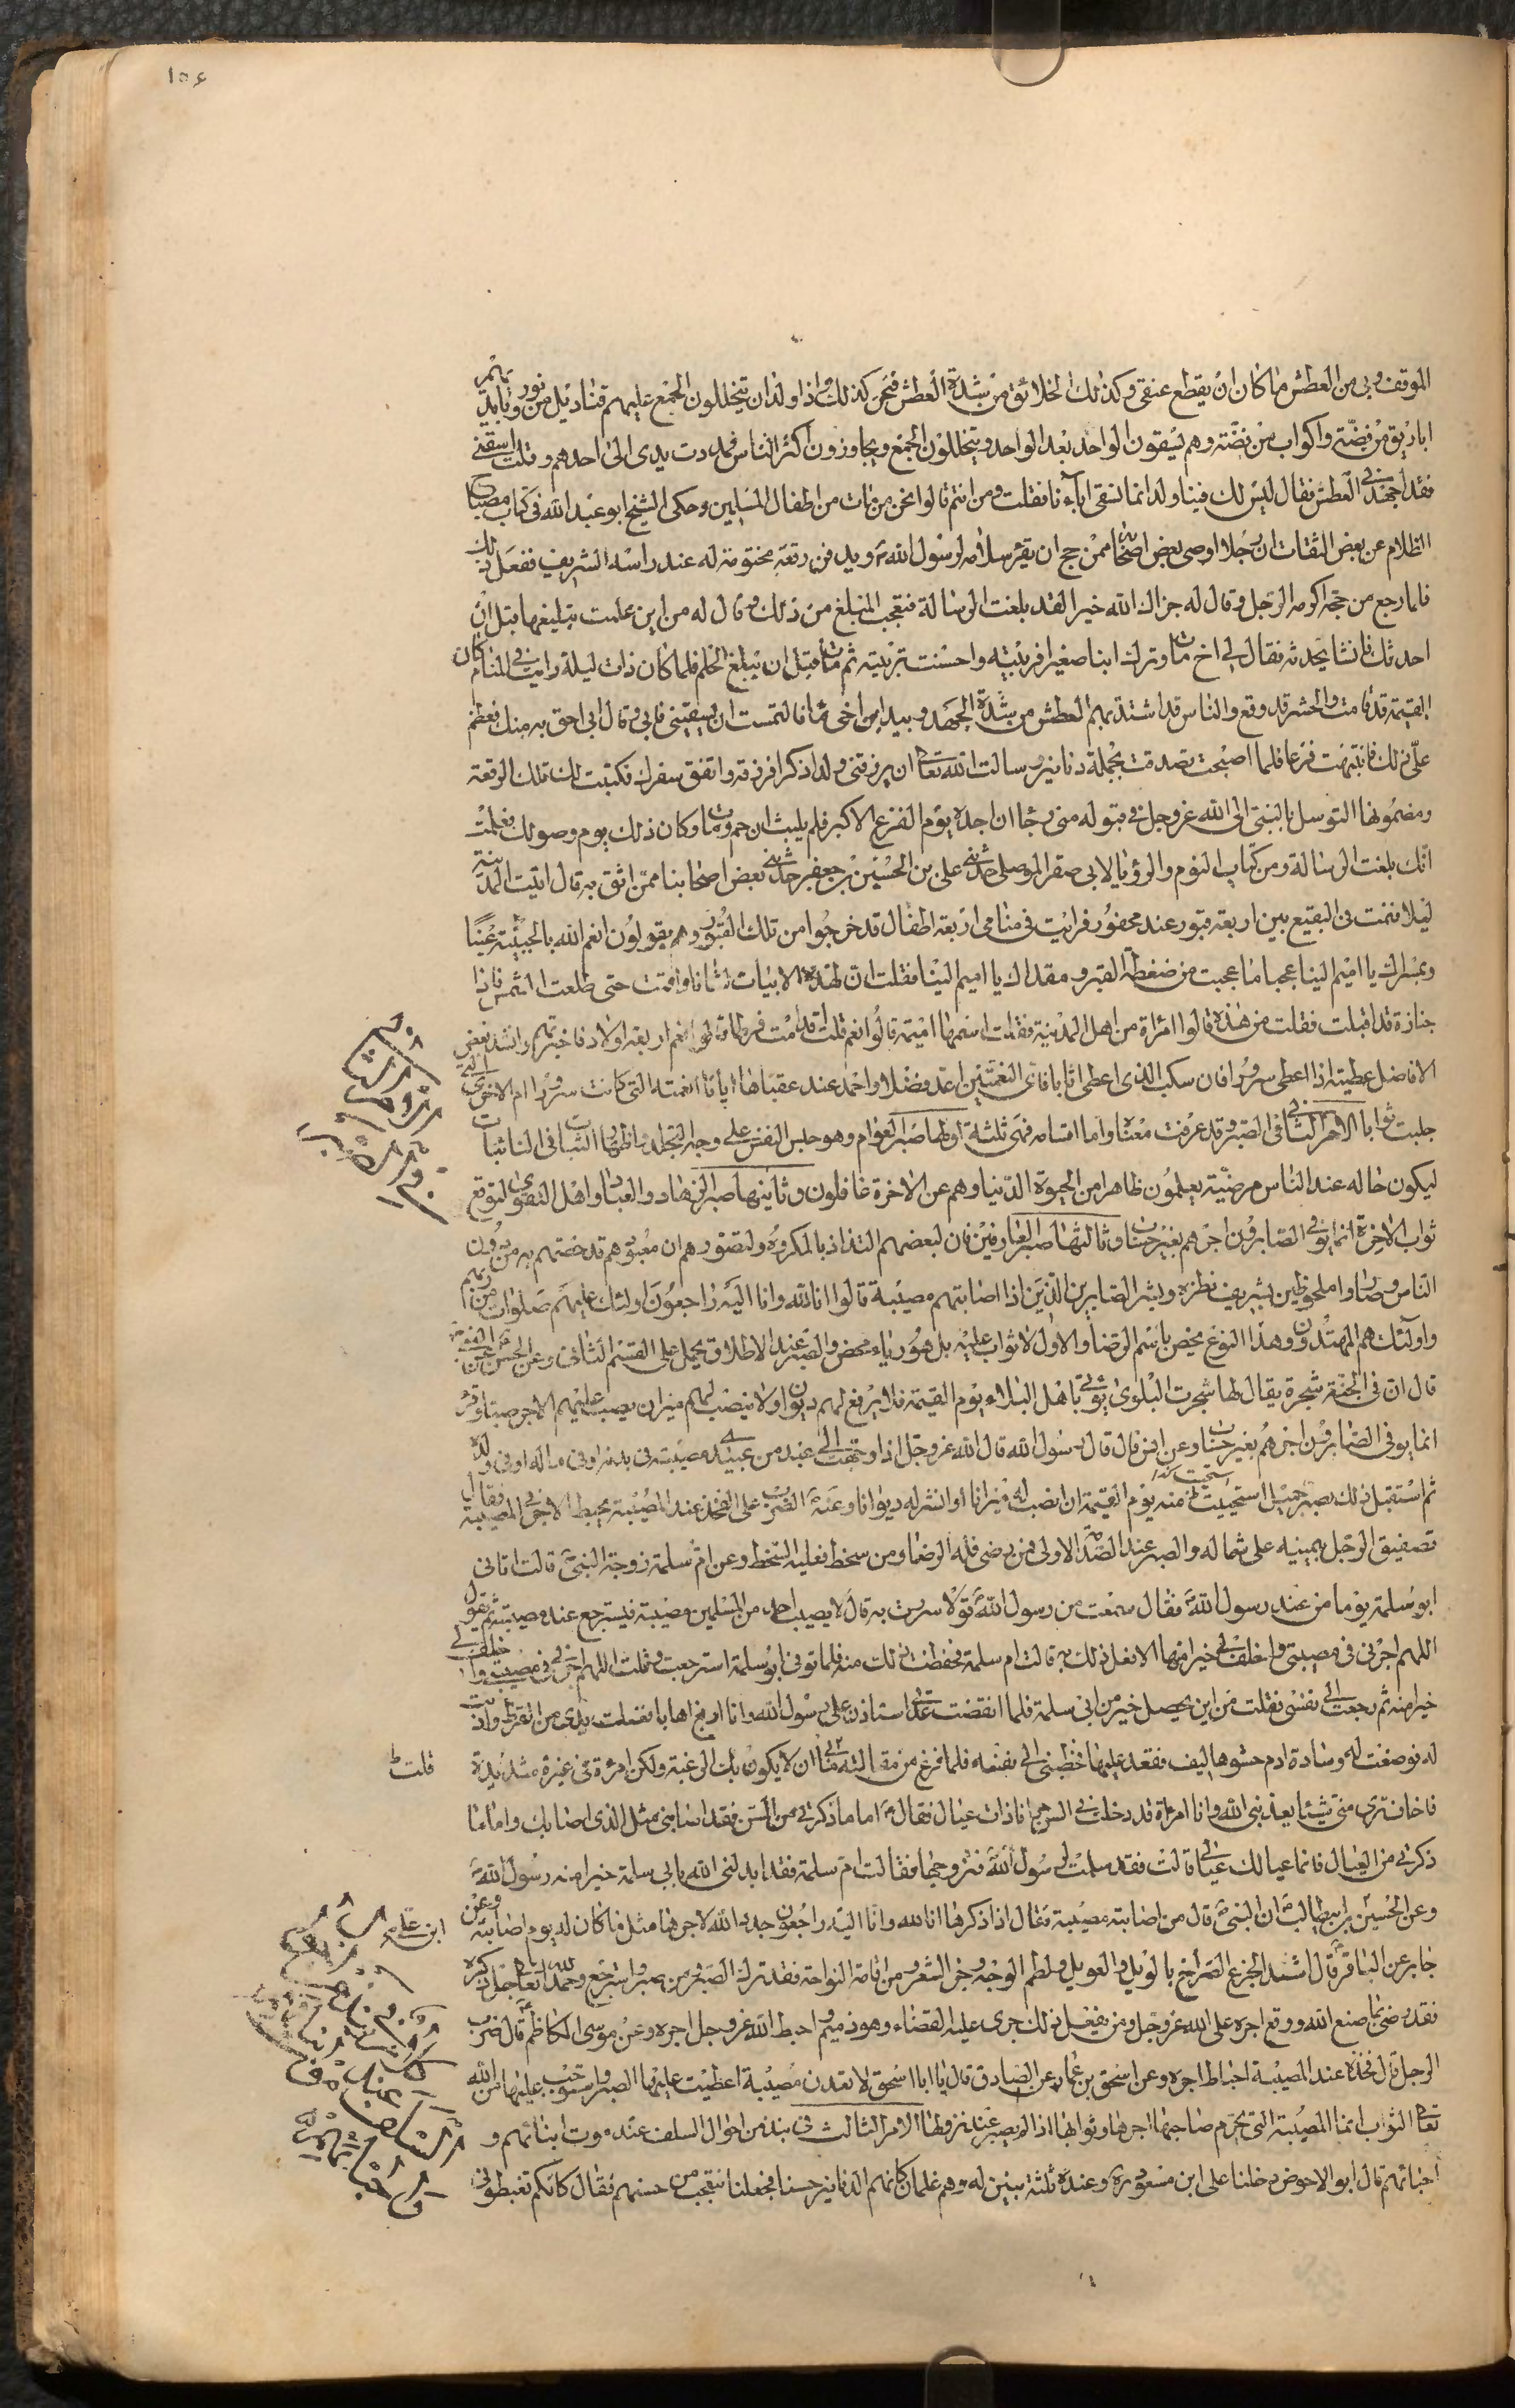 ١٥٤
الموقف وبي من العطش ما كان ان يقطع عنقي وكذلك الخلائق من شدة العطش فنحن كذلك واذا ولدان يتخللون الجمع عليهم قناديل من نور وبايديهم
اباريق من فضة واكواب من فضة وهم يسقون الواحد بعد الواحد ويتخللون الجمع ويجاوزون اكثر الناس فمددت يدي الى احدهم وقلت اسقني
فقد اجهدني العطش فقال ليس لك فينا ولد انما نسقي اباءنا فقلت ومن انتم قالوا نحن من مات من اطفال المسلمين وحكى الشيخ ابو عبد الله في كتاب مصباح
الظلام عن بعض الثقات ان رجلا اوصى بعض اصحابه ممن حج ان يقرء سلامه لرسول الله ص ويدفن رقعة مختومة له عند راسه الشريف ففعل ذلك
فلما رجع من حجه اكرمه الرجل وقال له جزاك الله خيرا لقد بلغت الرسالة فتعجب المبلغ من ذلك وقال له من اين علمت بتبليغها قبل ان
احدثك فانشا يحدثه فقال لي اخ مات وترك ابنا صغيرا فربيته واحسنت تربيته ثم مات قبل ان يبلغ الحلم فلما كان ذات ليلة رايت في المنام كان
القيمة قد قامت والحشر قد وقع والناس قد اشتد بهم العطش من شدة الجهد وبيد ابن اخي ماء فالتمست ان يسقيني فابى وقال ابي احق به منك فعظم
علي ذلك فانتبهت فزعا فلما اصبحت تصدقت بجملة دنانير وسالت الله تعالى ان يرزقني ولدا ذكرا فرزقه واتفق سفرك فكتبت لك تلك الرقعة
ومضمونها التوسل بالنبي الى الله عز وجل في قبوله مني رجاء ان اجده يوم الفزع الاكبر فلم يلبث ان حم ومات وكان ذلك يوم وصولك فعلمت
انك بلغت الرسالة ومن كتاب النوم والرؤيا لابي صقر الموصلي حدثني علي بن الحسين بن جعفر حدثني بعض اصحابنا ممن اثق به قال اتيت المدينة
ليلا فنمت في البقيع بين اربعة قبور عند محفور فرايت في منامي اربعة اطفال قد خرجوا من تلك القبور وهم يقولون انعم الله بالحبيبة عينا
وبمسراك يا اميم الينا عجبا ما عجبت من ضغطة القبر ومقداك يا اميم الينا فقلت ان لهذه الابيات لشانا واقمت حتى طلعت الشمس فاذا
جنازة قد اقبلت فقلت من هذه قالوا امرأة من اهل المدينة فقلت اسمها اميمة قالوا نعم قلت اقدمت فرطا قالوا نعم اربعة اولاد فاخبرتهم وانشد بعض
الافاضل عطيته اذا اعطى سرورا فان سلب الذي اعطى اثابا فاي النعمتين اعد فضلا واحمد عند عقباها ايابا انعمته التي كانت سرورا ام الاخرى التي
جلبت ثوابا الامر الثاني في الصبر وقد عرفت معناه واما اقسامه فهي ثلثة اولها صبر العوام وهو حبس النفس على وجه التجلد واظهار الثبات في النائبات
ليكون حاله عند الناس مرضية يعلمون ظاهرا من الحيوة الدنيا وهم عن الاخرة غافلون وثانيها صبر الزهاد والعباد واهل التقوى لتوقع
ثواب الاخرة انما يوفى الصابرون اجرهم بغير حساب وثالثها صبر العارفين فان لبعضهم التذاذ بالمكروه ولتصورهم ان معبودهم قد خصهم به من دون
الناس وصاروا ملحوظين بشريف نظره وبشر الصابرين الذين اذا اصابتهم مصيبة قالوا انا لله وانا اليه راجعون اولئك عليهم صلوات من ربهم
واولئك هم المهتدون وهذا النوع يخص باسم الرضا والاول لا ثواب عليه بل هو رياء محض والصبر عند الاطلاق يحمل على القسم الثاني وعن الحسن عن
قال ان في الجنة شجرة يقال لها شجرت البلوى يؤتى باهل البلاء يوم القيمة فلا يرفع لهم ديوان ولا ينصب لهم ميزان يصب عليهم الاجر صبا وقرء
انما يوفى الصابرون اجرهم بغير حساب وعن انس قال قال رسول الله قال الله عز وجل اذا وجهت الى عبد من عبيدي مصيبة في بدنه او في ماله او في ولده
ثم استقبل ذلك بصبر جميل استحييت منه يوم القيمة ان انصب له ميزانا او انشر له ديوانا وعنه ص الضرب على الفخذ عند المصيبة يحبط الاجر في المصيبة فقال
تصفيق الرجل بيمينه على شماله والصبر عند الصدمة الاولى فمن رضي فله الرضا ومن سخط فعليه السخط وعن ام سلمة زوجة النبي ص قالت اتاني
ابو سلمة يوما من عند رسول الله ص فقال سمعت من رسول الله ص قولا سررت به قال لا يصيب احد من المسلمين مصيبة فيسترجع عند مصيبته ثم يقول
اللهم اجرني في مصيبتي واخلف لي خيرا منها الا فعل ذلك به قالت ام سلمة فحفظت ذلك منه فلما توفي ابو سلمة استرجعت وقلت اللهم اجرني في مصيبتي واخلف لي
خيرا منه ثم رجعت الى نفسي فقلت من اين يحصل خير من ابي سلمة فلما انقضت عدتي استاذن علي رسول الله وانا ادبغ اهابا فغسلت يدي من القرظ واذنت
له فوضعت له وسادة ادم حشوها ليف فقعد عليها فخطبني الى نفسه فلما فرغ من مقالته قلت ما بي ان لا يكون بك الرغبة ولكني امرءة في غيرة شديدة
قلت
فاخاف ترى مني شيئا يعذبني الله وانا امرءة قد دخلت في السن وانا ذات عيال فقال ص اما ما ذكرتي من السن فقد اصابني مثل الذي اصابك واما ما
ذكرتي من العيال فانما عيالك عيالي قالت فقد سلمت لرسول الله ص فتزوجها فقالت ام سلمة فقد ابدلني الله بابي سلمة خيرا منه رسول الله ص
وعن الحسين بن ابيطالب ان النبي ص قال من اصابته مصيبة فقال اذا ذكرها انا لله وانا اليه راجعون جدد الله لاجرها مثل ما كان له يوم اصابته وعن
ابن علي صح
جابر عن الباقر ع قال اشد الجزع الصراخ بالويل والعويل ولطم الوجه وجز الشعر ومن اقام النواحة فقد ترك الصبر ومن صبر واسترجع وحمد الله تعالى جل ذكره
فقد رضي بما صنع الله ووقع اجره على الله عز وجل ومن لم يفعل ذلك جرى عليه القضاء وهو ذميم واحبط الله عز وجل اجره وعن موسى الكاظم ع قال ضرب
الرجل على فخذه عند المصيبة احباط اجره وعن اسحق بن عمار عن الصادق قال يا ابا اسحق لا تعدن مصيبة اعطيت عليها الصبر واستوجبت عليها من الله
تعالى الثواب انما المصيبة التي يحرم صاحبها اجرها وثوابها اذا لم يصبر عند نزولها الامر الثالث في نبذ من احوال السلف عند موت ابنائهم و
احبائهم قال ابو الاحوص دخلنا على ابن مسعود ره وعنده ثلثة بنين له وهم غلمان كانهم الدنانير حسنا فجعلنا نتعجب من حسنهم فقال كانكم تغبطوني